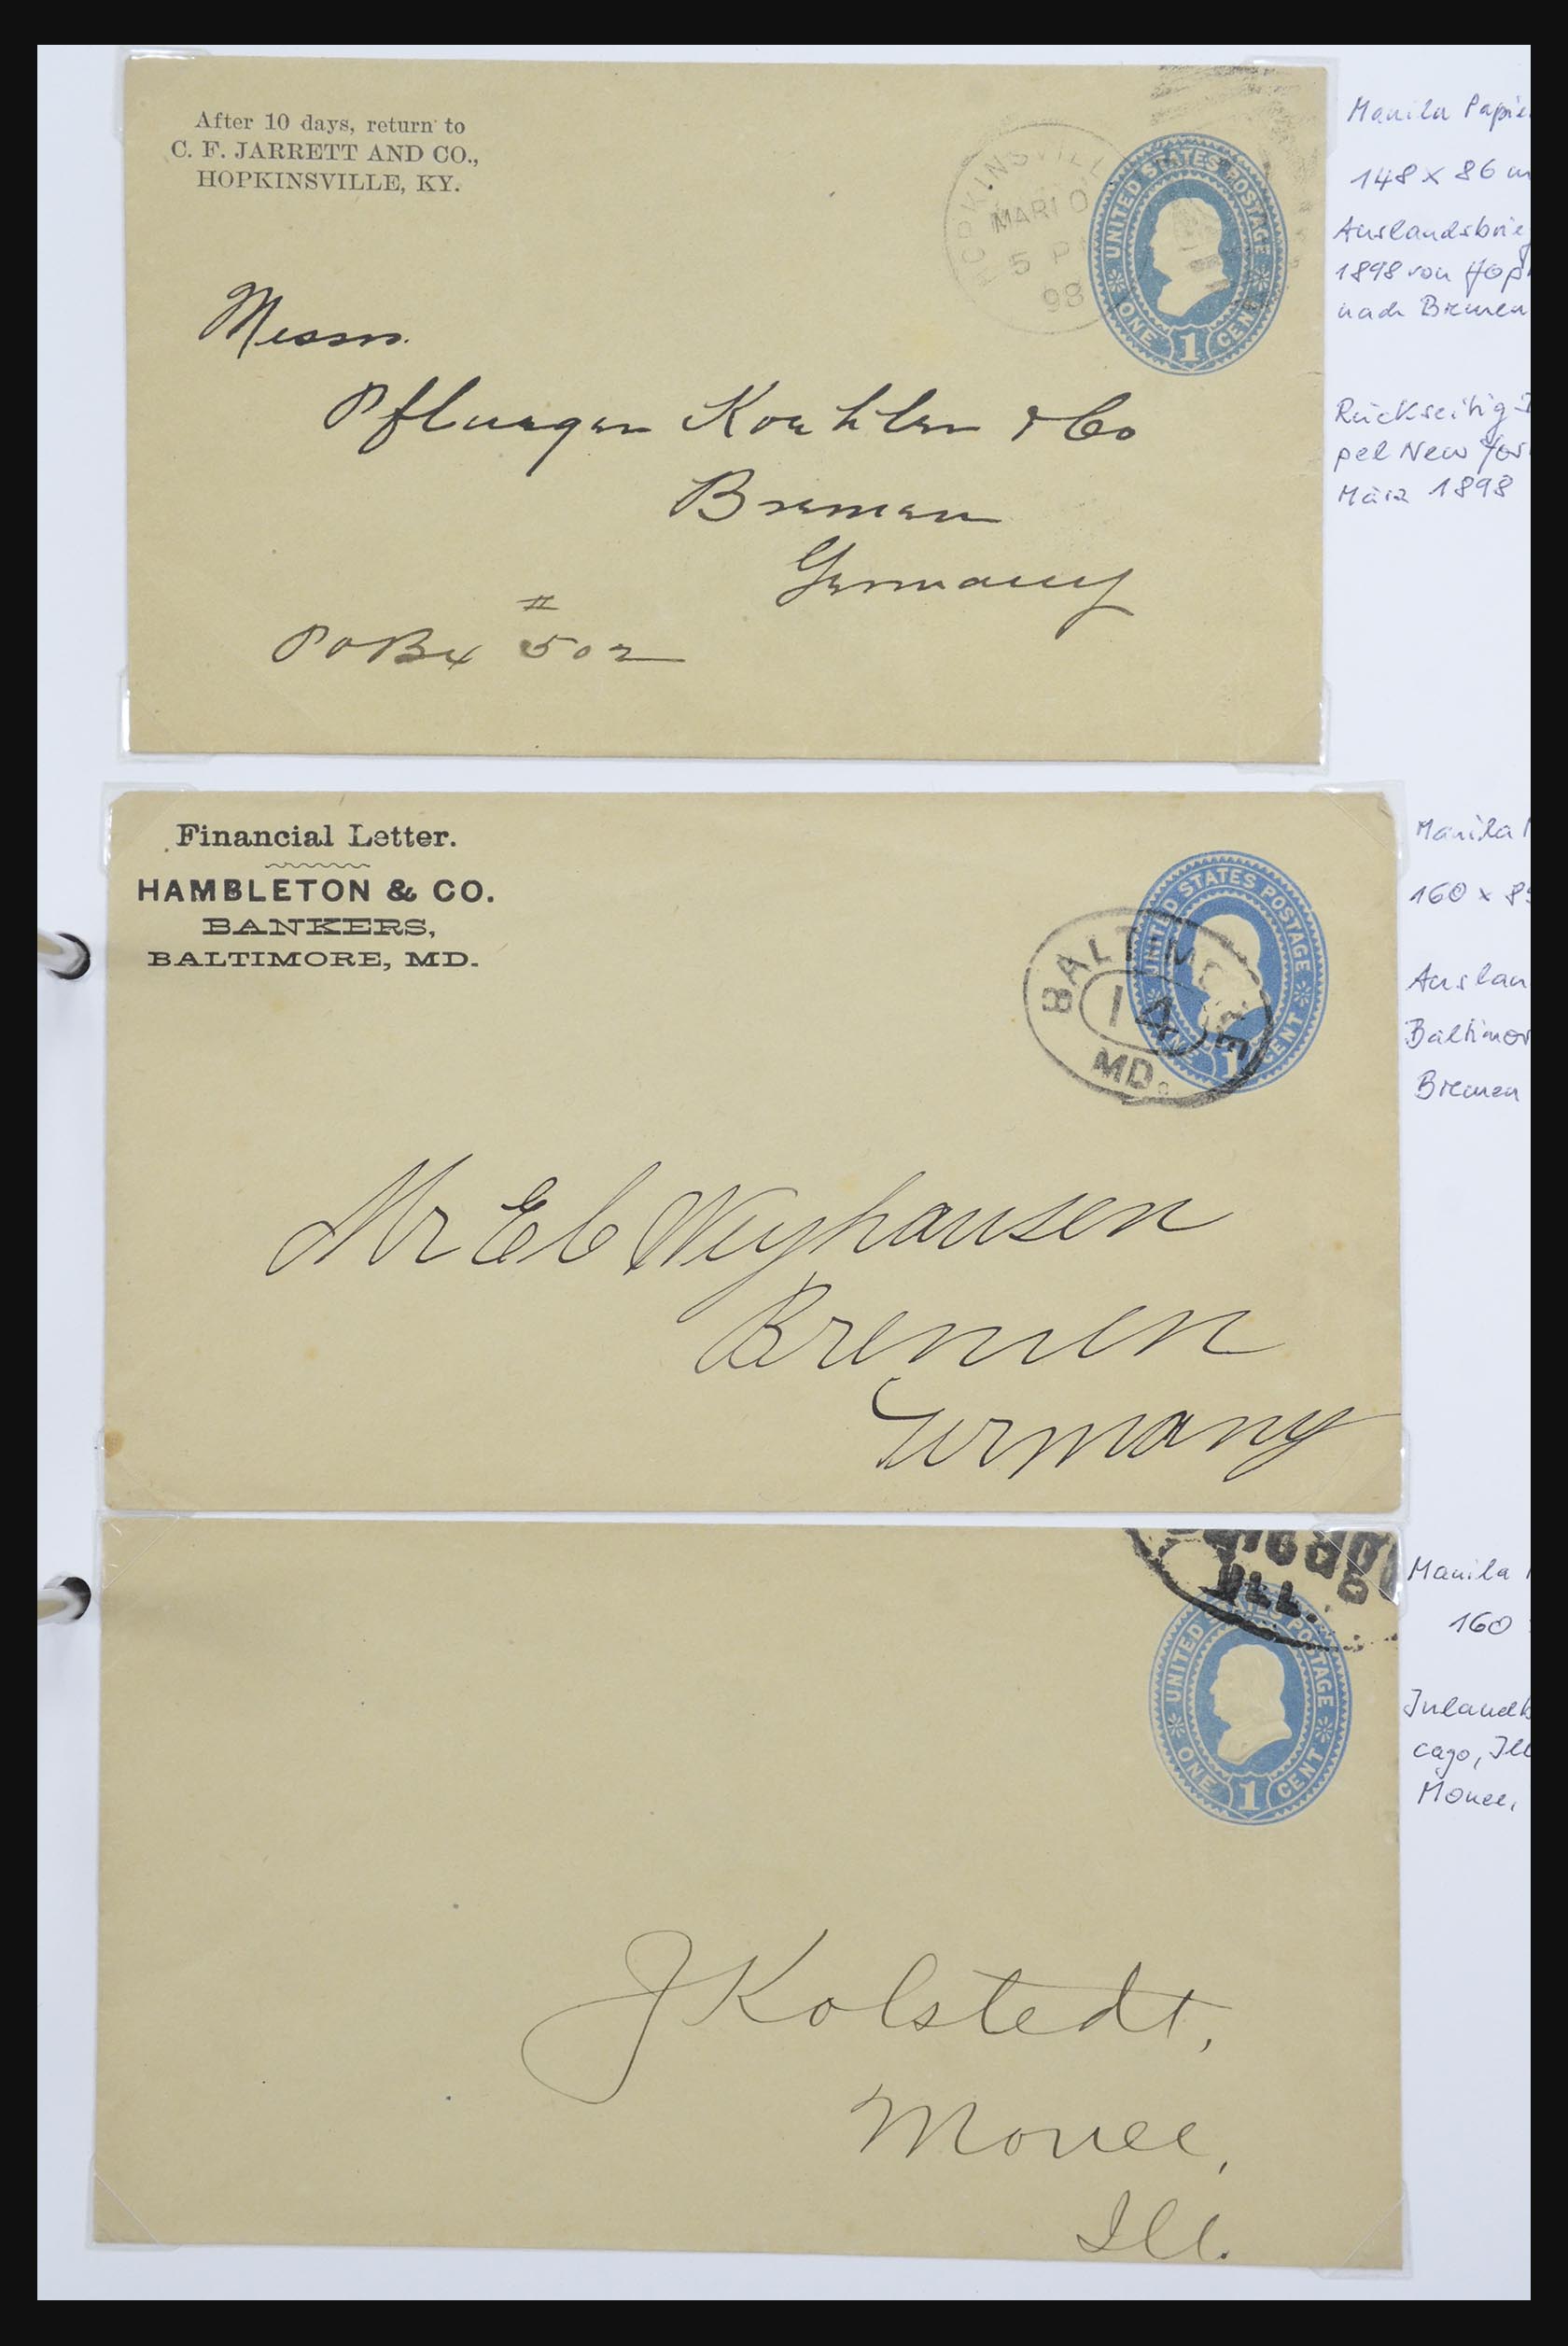 After 10 days, return to
C. F. JARRETT AND CO.,
HOPKINSVILLE, KY.
HOPKINSVILL
MAR 10
5 P
98
UNITED STATES POSTAGE
ONE 1 CENT
Messrs.
Pflueger Koehler & Co
Bremen
Germany
PO Bx # 502
Manila Papie
148 x 86 m
Auslandsbrie
1898 von Hop
nach Bremen
Rückseitig
pel New Yor
März 1898
Financial Letter.
HAMBLETON & CO.
BANKERS,
BALTIMORE, MD.
BALTIMORE
14
MD.
UNITED STATES POSTAGE
ONE 1 CENT
Mr E C Weyhausen
Bremen
Germany
Manila
160 x 8
Auslan
Baltimor
Bremen
ILL.
UNITED STATES POSTAGE
ONE 1 CENT
J Kolstedt,
Monee,
Ill.
Manila
160
Inlandb
cago, Ill
Monee,